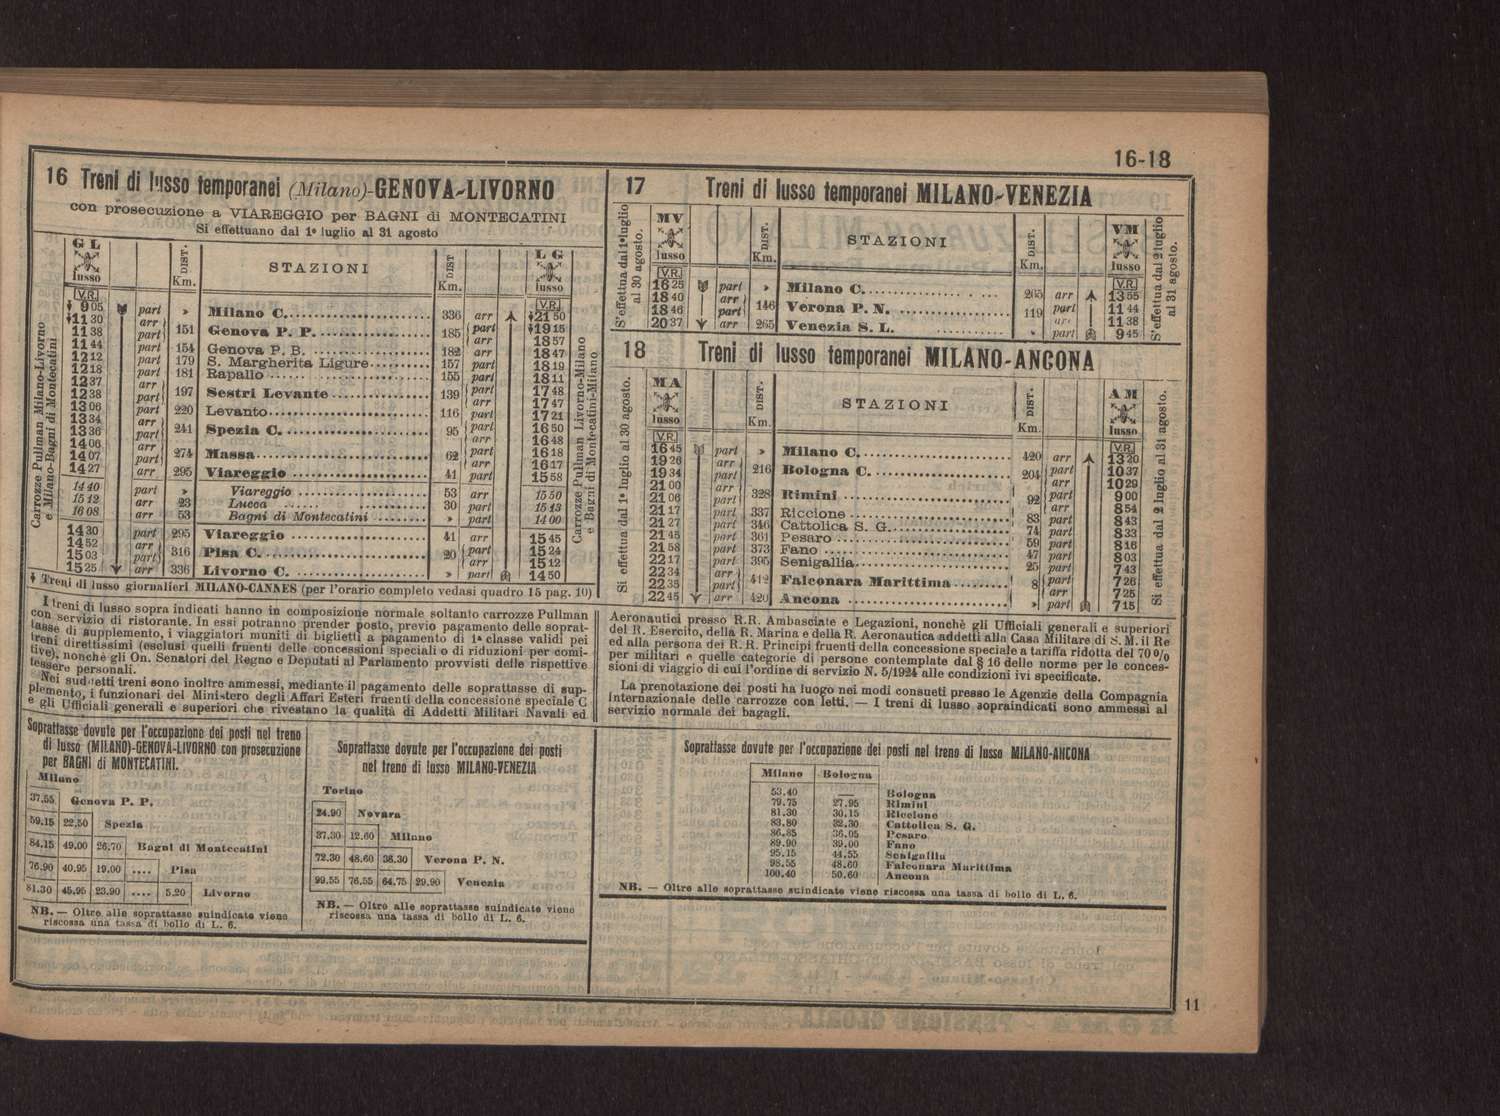 16-18
16 Treni di lusso temporanei (Milano)-GENOVA-LIVORNO
con prosecuzione a VIAREGGIO per BAGNI di MONTECATINI
Si effettuano dal 1º luglio al 31 agosto
Carrozze Pullman Milano-Livorno
e Milano-Bagni di Montecatini
G L lusso V.R. | DIST. Km. | STAZIONI | DIST Km. | L G lusso V.R.
9 05 part » Milano C. 336 arr 21 50
11 30 arr
11 38 part 151 Genova P. P. 185 part 19 15
arr 18 57
11 44 part 154 Genova P. B. 182 arr 18 47
12 12 part 179 S. Margherita Ligure 157 part 18 19
12 18 part 181 Rapallo 155 part 18 11
12 37 arr
12 38 part 197 Sestri Levante 139 part 17 48
arr 17 47
13 06 part 220 Levanto 116 part 17 21
13 34 arr
13 36 part 241 Spezia C. 95 part 16 50
arr 16 48
14 06 arr
14 07 part 274 Massa 62 part 16 18
arr 16 17
14 27 arr 295 Viareggio 41 part 15 58
14 40 part » Viareggio 53 arr 15 50
15 12 arr 23 Lucca 30 part 15 13
16 08 arr 53 Bagni di Montecatini » part 14 00
14 30 part 295 Viareggio 41 arr 15 45
14 52 arr
15 03 part 316 Pisa C. 20 part 15 24
arr 15 12
15 25 arr 336 Livorno C. » part 14 50
Carrozze Pullman Livorno-Milano
e Bagni di Montecatini-Milano
Treni di lusso giornalieri MILANO-CANNES (per l'orario completo vedasi quadro 15 pag. 10)
17 Treni di lusso temporanei MILANO-VENEZIA
S'effettua dal 1º luglio
al 30 agosto.
MV lusso V.R. | DIST. Km. | STAZIONI | DIST. Km. | VM lusso V.R.
16 25 part » Milano C. 265 arr 13 55
18 40 arr
18 46 part 146 Verona P. N. 119 part 11 44
arr 11 38
20 37 arr 265 Venezia S. L. » part 9 45
S'effettua dal 2 luglio
al 31 agosto.
18 Treni di lusso temporanei MILANO-ANCONA
Si effettua dal 1º luglio al 30 agosto.
MA lusso V.R. | DIST. Km. | STAZIONI | DIST. Km. | AM lusso V.R.
16 45 part » Milano C. 420 arr 13 20
19 26 arr
19 34 part 216 Bologna C. 204 part 10 37
arr 10 29
21 00 arr
21 06 part 328 Rimini 92 part 9 00
arr 8 54
21 17 part 337 Riccione 83 part 8 43
21 27 part 346 Cattolica S. G. 74 part 8 33
21 45 part 361 Pesaro 59 part 8 16
21 58 part 373 Fano 47 part 8 03
22 17 part 395 Senigallia 25 part 7 43
22 34 arr
22 35 part 412 Falconara Marittima 8 part 7 26
arr 7 25
22 45 arr 420 Ancona » part 7 15
Si effettua dal 2 luglio al 31 agosto.
I treni di lusso sopra indicati hanno in composizione normale soltanto carrozze Pullman
con servizio di ristorante. In essi potranno prender posto, previo pagamento delle soprat-
tasse di supplemento, i viaggiatori muniti di biglietti a pagamento di 1ª classe validi pei
treni direttissimi (esclusi quelli fruenti delle concessioni speciali o di riduzioni per comi-
tive), nonchè gli On. Senatori del Regno e Deputati al Parlamento provvisti delle rispettive
tessere personali.
Nei suddetti treni sono inoltre ammessi, mediante il pagamento delle soprattasse di sup-
plemento, i funzionari del Ministero degli Affari Esteri fruenti della concessione speciale C
e gli Ufficiali generali e superiori che rivestano la qualità di Addetti Militari Navali ed
Aeronautici presso R.R. Ambasciate e Legazioni, nonchè gli Ufficiali generali e superiori
del R. Esercito, della R. Marina e della R. Aeronautica addetti alla Casa Militare di S. M. il Re
ed alla persona dei R. R. Principi fruenti della concessione speciale a tariffa ridotta del 70 %
per militari e quelle categorie di persone contemplate dal § 16 delle norme per le conces-
sioni di viaggio di cui l'ordine di servizio N. 5/1924 alle condizioni ivi specificate.
La prenotazione dei posti ha luogo nei modi consueti presso le Agenzie della Compagnia
Internazionale delle carrozze con letti. — I treni di lusso sopraindicati sono ammessi al
servizio normale dei bagagli.
Soprattasse dovute per l'occupazione dei posti nel treno
di lusso (MILANO)-GENOVA-LIVORNO con prosecuzione
per BAGNI di MONTECATINI.
Milano
37.55 Genova P. P.
59.15 22.50 Spezia
84.15 49.00 26.70 Bagni di Montecatini
76.90 40.95 19.00 .... Pisa
81.30 45.95 23.90 .... 5.20 Livorno
NB. — Oltre alle soprattasse suindicate viene
riscossa una tassa di bollo di L. 6.
Soprattasse dovute per l'occupazione dei posti
nel treno di lusso MILANO-VENEZIA
Torino
24.90 Novara
37.30 12.60 Milano
72.30 48.60 36.30 Verona P. N.
99.55 76.55 64.75 29.90 Venezia
NB. — Oltre alle soprattasse suindicate viene
riscossa una tassa di bollo di L. 6.
Soprattasse dovute per l'occupazione dei posti nel treno di lusso MILANO-ANCONA
Milano | Bologna
53.40 — Bologna
79.75 27.95 Rimini
81.30 30.15 Riccione
83.80 32.30 Cattolica S. G.
86.85 36.05 Pesaro
89.90 39.00 Fano
95.15 44.55 Senigallia
98.55 48.60 Falconara Marittima
100.40 50.60 Ancona
NB. — Oltre alle soprattasse suindicate viene riscossa una tassa di bollo di L. 6.
11